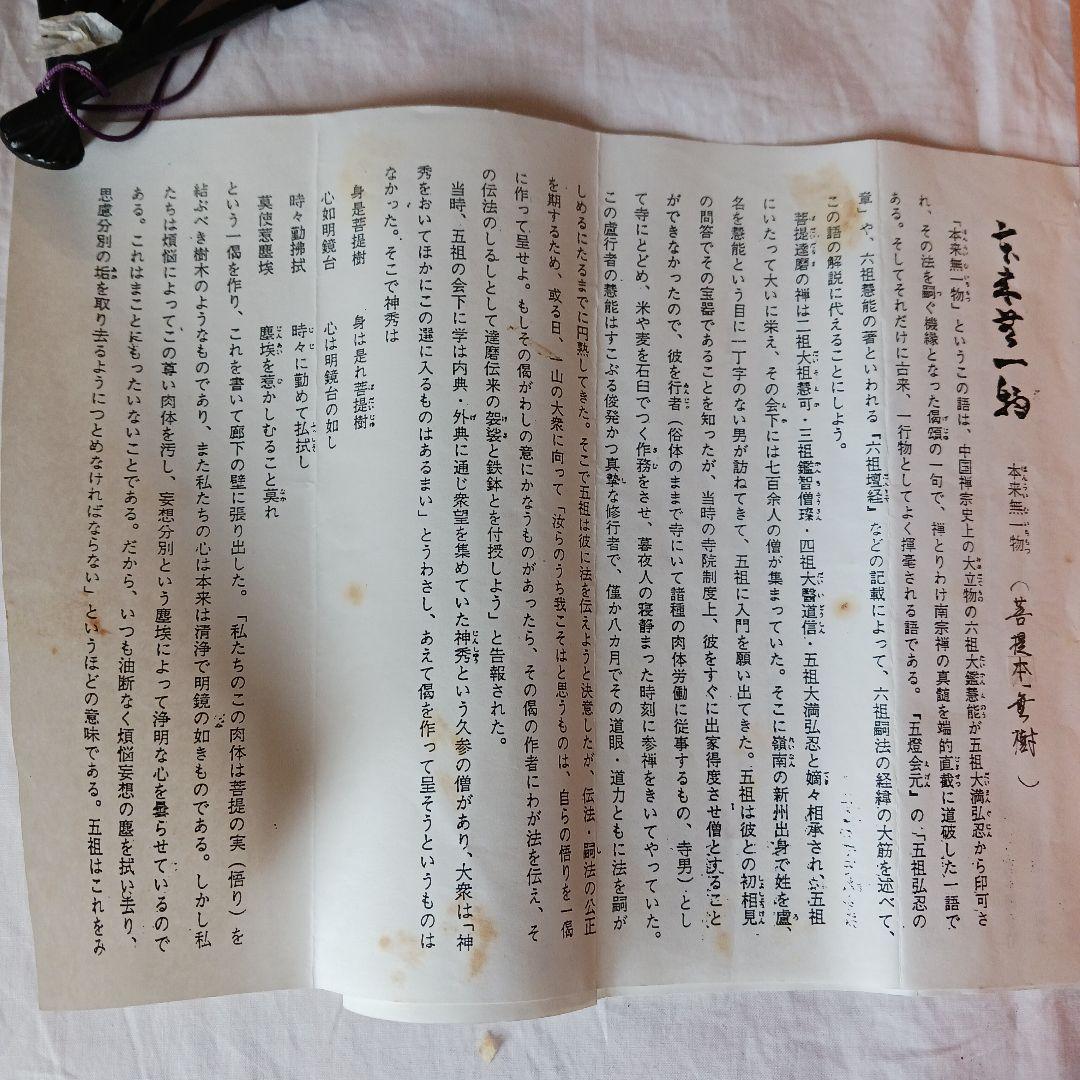 本来無一物　本来無一物（菩提本無樹）
「本来無一物」というこの語は、中国禅宗史上の大立物の六祖大鑑慧能が五祖大満弘忍から印可さ
れ、その法を嗣ぐ機縁となった偈頌の一句で、禅とりわけ南宗禅の真髄を端的直截に道破した一語で
ある。そしてそれだけに古来、一行物としてよく揮毫される語である。『五燈会元』の「五祖弘忍の
章」や、六祖慧能の著といわれる『六祖壇経』などの記載によって、六祖嗣法の経緯の大筋を述べて、
この語の解説に代えることにしよう。
菩提達磨の禅は二祖大祖慧可・三祖鑑智僧璨・四祖大醫道信・五祖大満弘忍と嫡々相承され、五祖
にいたって大いに栄え、その会下には七百余人の僧が集まっていた。そこに嶺南の新州出身で姓を盧、
名を慧能という目に一丁字のない男が訪ねてきて、五祖に入門を願い出てきた。五祖は彼との初相見
の問答でその宝器であることを知ったが、当時の寺院制度上、彼をすぐに出家得度させ僧とすること
ができなかったので、彼を行者（俗体のままで寺にいて諸種の肉体労働に従事するもの、寺男）とし
て寺にとどめ、米や麦を石臼でつく作務をさせ、暮夜人の寝静まった時刻に参禅をきいてやっていた。
この盧行者の慧能はすこぶる俊発かつ真摯な修行者で、僅か八カ月でその道眼・道力ともに法を嗣が
しめるにたるまでに円熟してきた。そこで五祖は彼に法を伝えようと決意したが、伝法・嗣法の公正
を期するため、或る日、一山の大衆に向って「汝らのうち我こそはと思うものは、自らの悟りを一偈
に作って呈せよ。もしその偈がわしの意にかなうものがあったら、その偈の作者にわが法を伝え、そ
の伝法のしるしとして達磨伝来の袈裟と鉄鉢とを付授しよう」と告報された。
当時、五祖の会下に学は内典・外典に通じ衆望を集めていた神秀という久参の僧があり、大衆は「神
秀をおいてほかにこの選に入るものはあるまい」とうわさし、あえて偈を作って呈そうというものは
なかった。そこで神秀は
身是菩提樹　身は是れ菩提樹
心如明鏡台　心は明鏡台の如し
時々勤拂拭　時々に勤めて払拭し
莫使惹塵埃　塵埃を惹かしむること莫れ
という一偈を作り、これを書いて廊下の壁に張り出した。「私たちのこの肉体は菩提の実（悟り）を
結ぶべき樹木のようなものであり、また私たちの心は本来は清浄で明鏡の如きものである。しかし私
たちは煩悩によってこの尊い肉体を汚し、妄想分別という塵埃によって浄明な心を曇らせているので
ある。これはまことにもったいないことである。だから、いつも油断なく煩悩妄想の塵を拭い去り、
思慮分別の垢を取り去るようにつとめなければならない」というほどの意味である。五祖はこれをみ